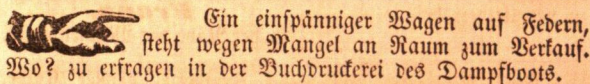 Ein einſpänniger Wagen auf Federn,
ſteht wegen Mangel an Raum zum Verkauf.
Wo? zu erfragen in der Buchdruckerei des Dampfboots.